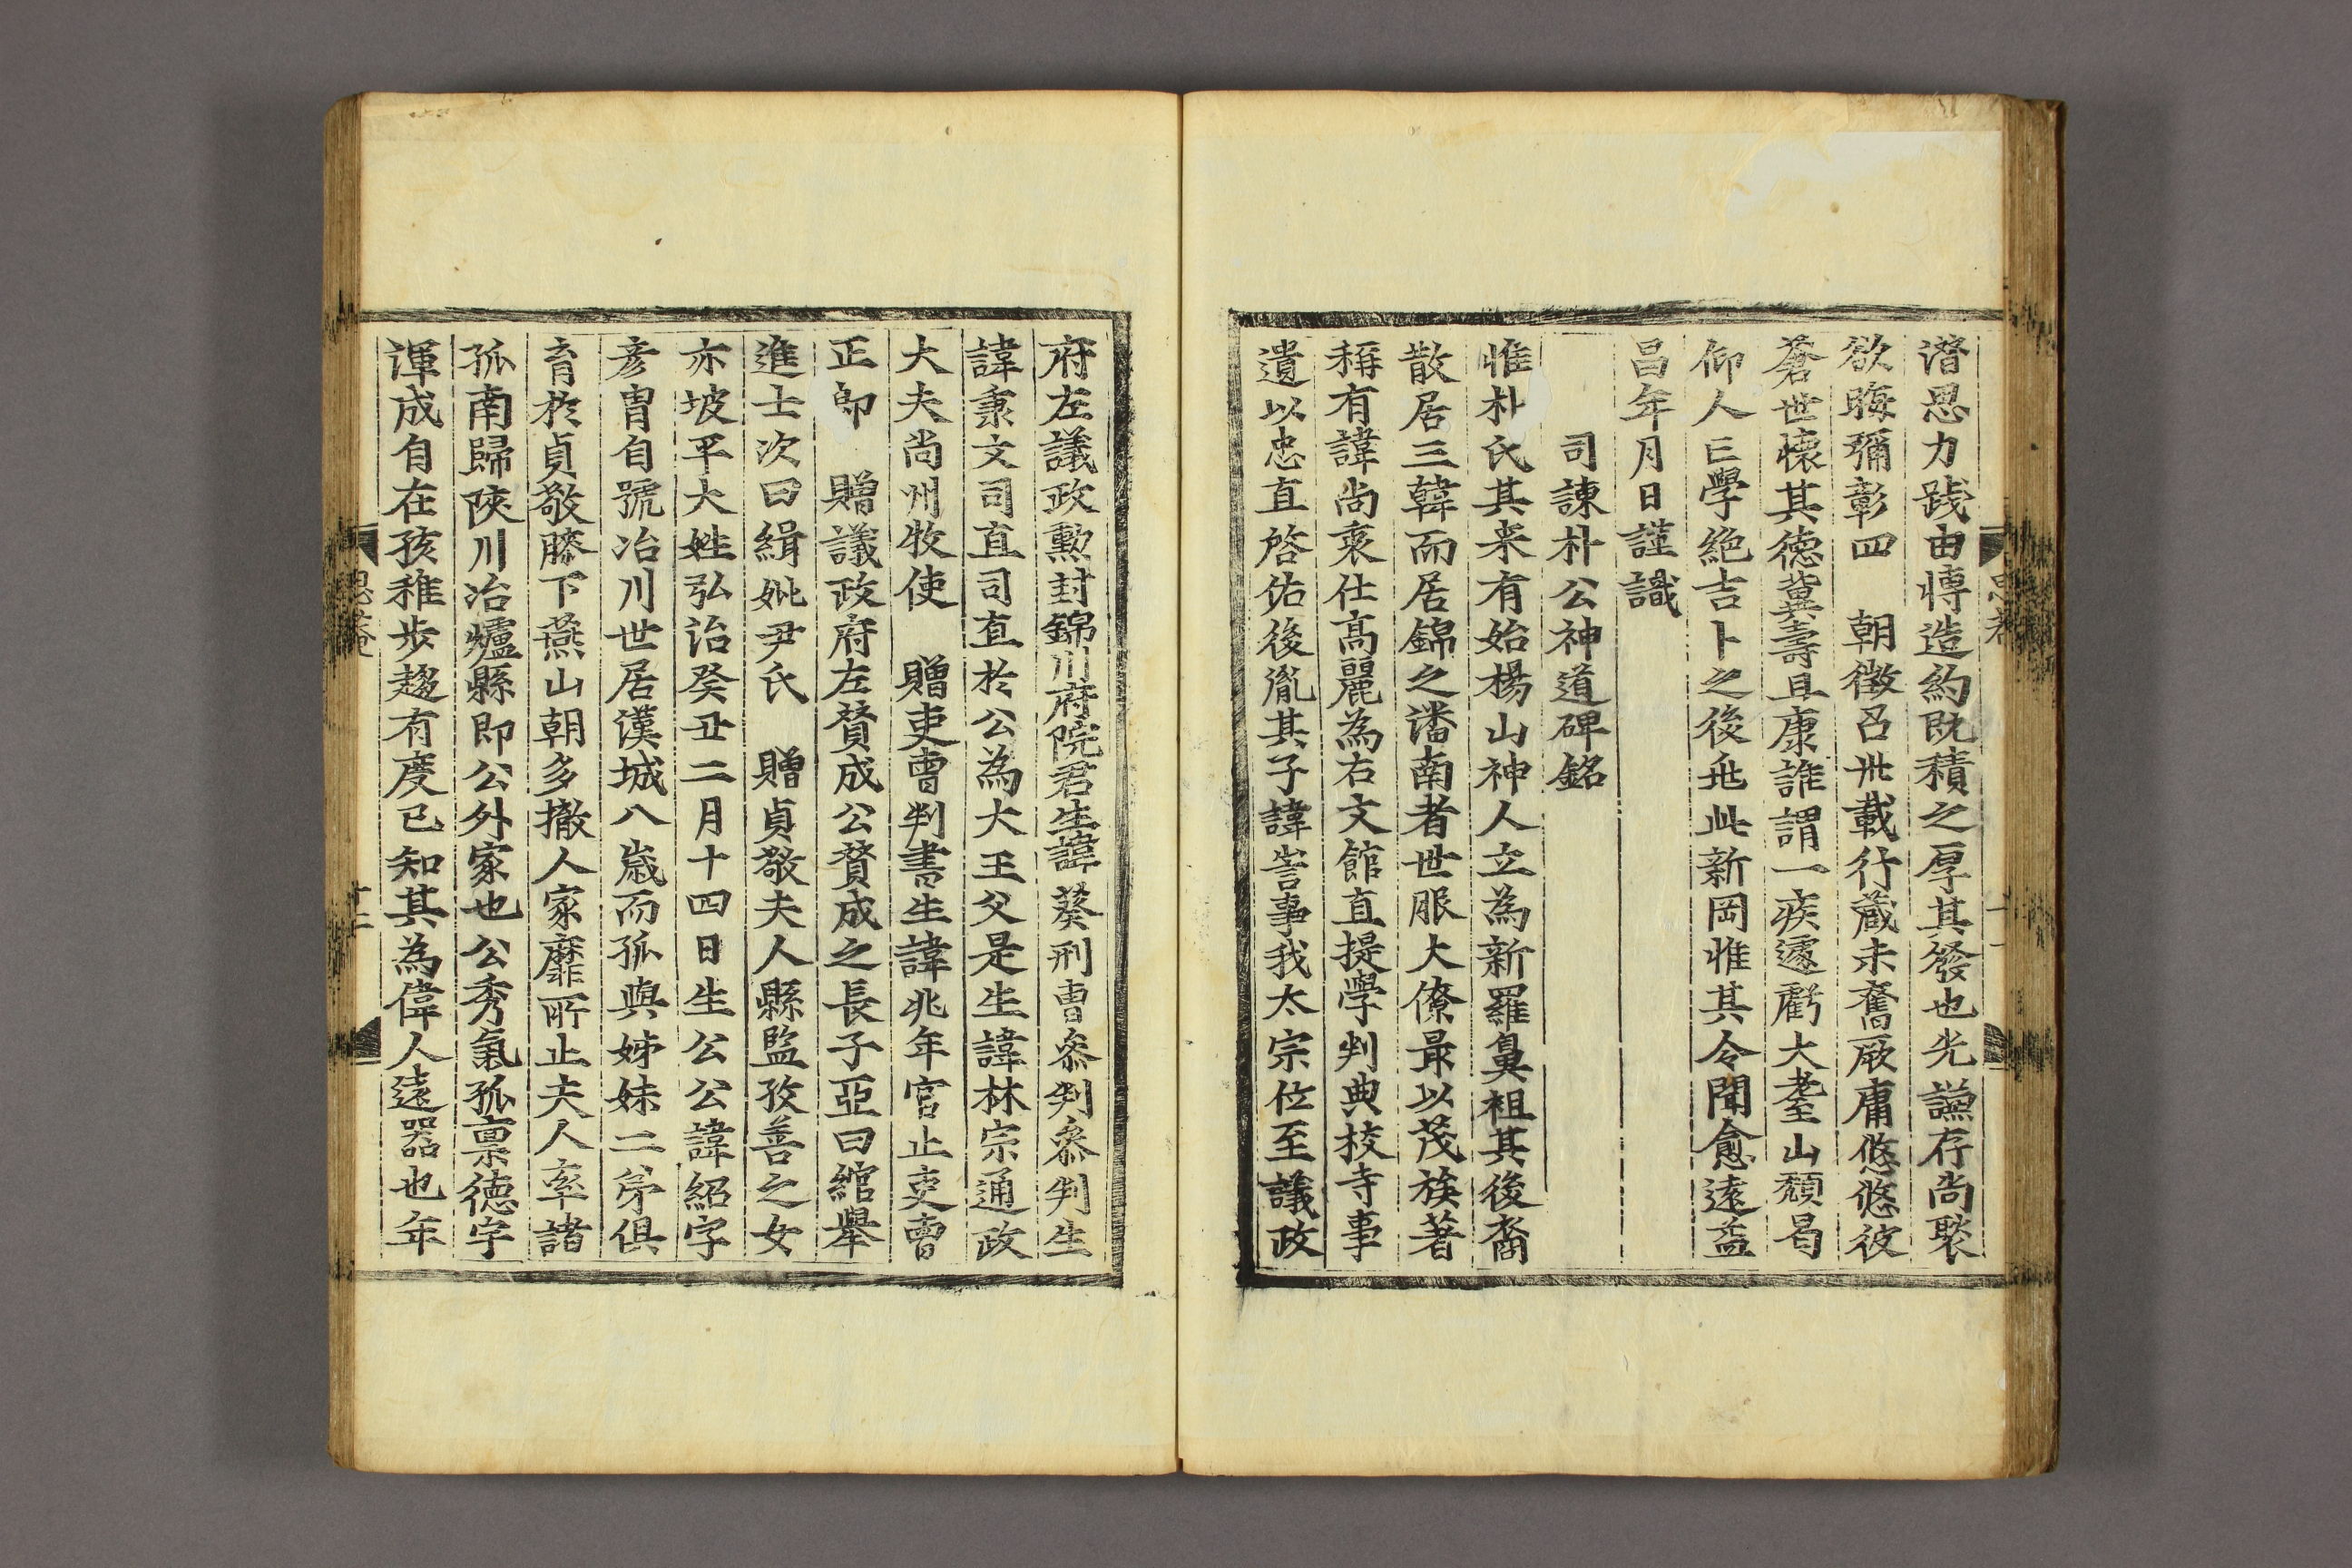 潛思力踐由博造約旣積之厚其發也光謙存尚褧
欲晦彌彰四　朝徵召卅載行藏未奮厥庸悠悠彼
蒼世懷其德冀壽且康誰謂一疾遽虧大耋山頹曷
仰人亡學絶吉卜之後兆此新岡惟其令聞愈遠益
昌年月日謹識
司諫朴公神道碑銘
惟朴氏其來有始楊山神人立為新羅鼻祖其後裔
散居三韓而居錦之潘南者世服大僚最以茂族著
稱有諱尚衷仕高麗為右文館直提學判典校寺事
遺以忠直啓佑後胤其子諱訔事我太宗位至議政
府左議政勲封錦川府院君生諱葵刑曺叅判叅判生
諱秉文司直司直於公為大王父是生諱林宗通政
大夫尚州牧使　贈吏曺判書生諱兆年官止吏曺
正郎　贈議政府左賛成公賛成之長子亞曰綰舉
進士次曰緝妣尹氏　贈貞敬夫人縣監孜善之女
亦坡平大姓弘治癸丑二月十四日生公公諱紹字
彦胄自號冶川世居漢城八歲而孤與姊妹二弟俱
育於貞敬膝下燕山朝多撤人家靡所止夫人率諸
孤南歸陜川冶爐縣卽公外家也公秀氣孤禀德宇
渾成自在孩稚步趨有度已知其為偉人遠器也年